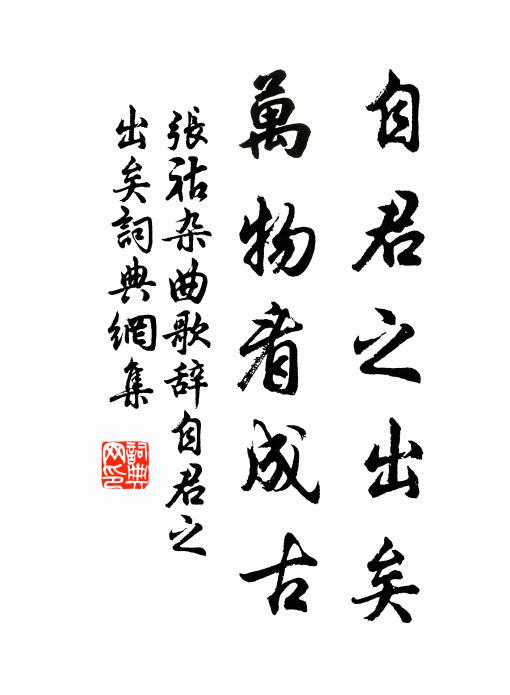 自君之出矣
萬物看成古
張祜杂曲歌辞自君之
出矣詞典網集
詞典
网印